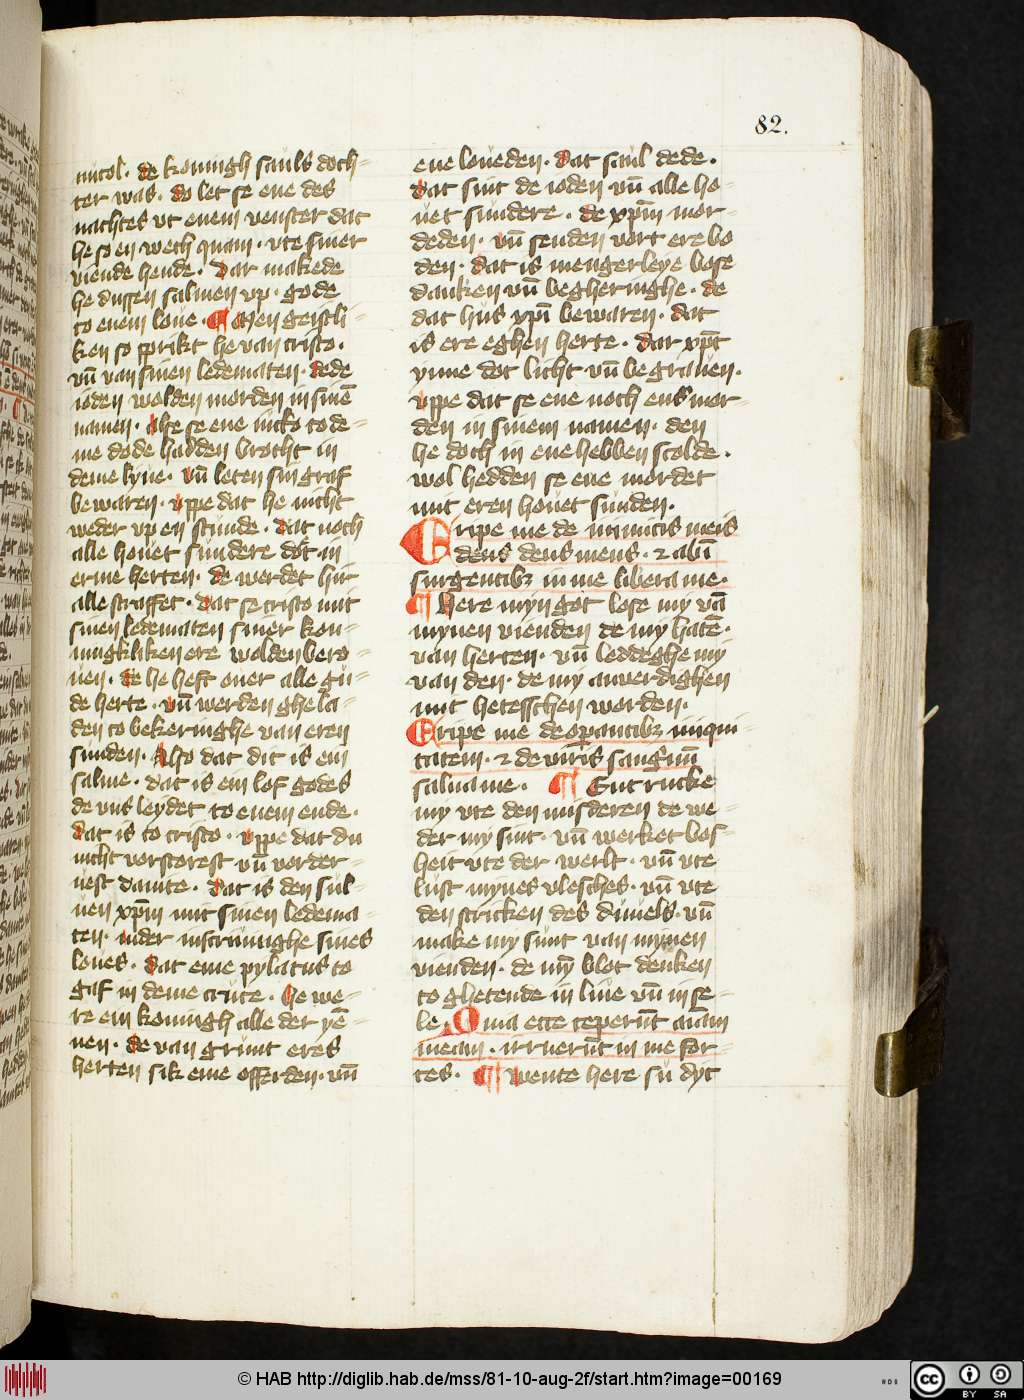 82.
micol. de konnigh sauls doch-
ter was. do let se ene des
nachtes vt enem venster dat
he so en wech quam. vte siner
viende hende. dar makede
he dussen salmen vp. gode
to enem loue. ¶ Men geistli-
ken so sprikt he van cristo.
vn̄ van sinen ledematen. dede
ioden wolden morden in sinē
namen. Alse se ene nicko to de-
me dode hadden brocht in
deme kyue. vn̄ leten sin graf
bewaren. vppe dat he nicht
weder vp en stunde. dat noch
alle houet sundere dot in
erme herten. de werdet hir
alle straffet. dat se cristo mit
sinen ledematen siner kon-
nigkliken ere wolden bero-
uen. de he heft ouer alle gu-
de herte. vn̄ werden ghela-
den to bekeringhe van eren
sunden. Also dat dit is ein
salme. dat is ein lof godes
de vns leydet to enem ende.
dat is to cristo. vppe dat du
nicht vorstorest vn̄ vorder-
uest dauite. dat is den sul-
uen xp̄m mit sinen ledema-
ten. in der inscriuinghe sines
loues. dat eme pylatus to
gaf in deme cruce. he we-
re ein konnigh alle der yē-
nen. de van grunt eres
herten sik eme offerden. vn̄
ene loueden. dat saul dede.
dat sint de ioden vn̄ alle ho-
uet sundere. de xp̄m mor-
deden. vn̄ senden vort ere bo
den. dat is mengerleye bose
danken vn̄ begheringhe. de
dat hus xp̄i bewaren. dat
is ere eghen herte. dar xp̄s
ynne dot licht vn̄ begrauen.
vppe dat se ene noch ens mor-
den in sinem namen. den
he doch in ene hebben scolde.
wol hedden se ene mordet
mit eren houet sunden.
Eripe me de inimicis meis
deus deus meus. ⁊ ab in̄
surgentibꝫ in me libera me.
¶ Here myn got lose my vā
mynen vienden de my hatē.
van herten. vn̄ leddeghe my
van den. de my anverdighen
mit hetesschen worden.
Eripe me de operantibꝫ iniqui-
tatem. ⁊ de viris sanguinū
salua me. ¶ Entrucke
my vte den misderen de we-
der my sint. vn̄ werket bos-
heit vte der werlt. vn̄ vte
lust mynes vlesches. vn̄ vte
den stricken des duuels. vn̄
make my sunt van mynen
vienden. de myn̄ blot denken
to ghetende in liue vn̄ in se-
le. Quia ecce ceperūt aīam
meam. irruerūt in me for-
tes. ¶ Wente here su dyt
© HAB http://diglib.hab.de/mss/81-10-aug-2f/start.htm?image=00169
HAB
cc BY SA